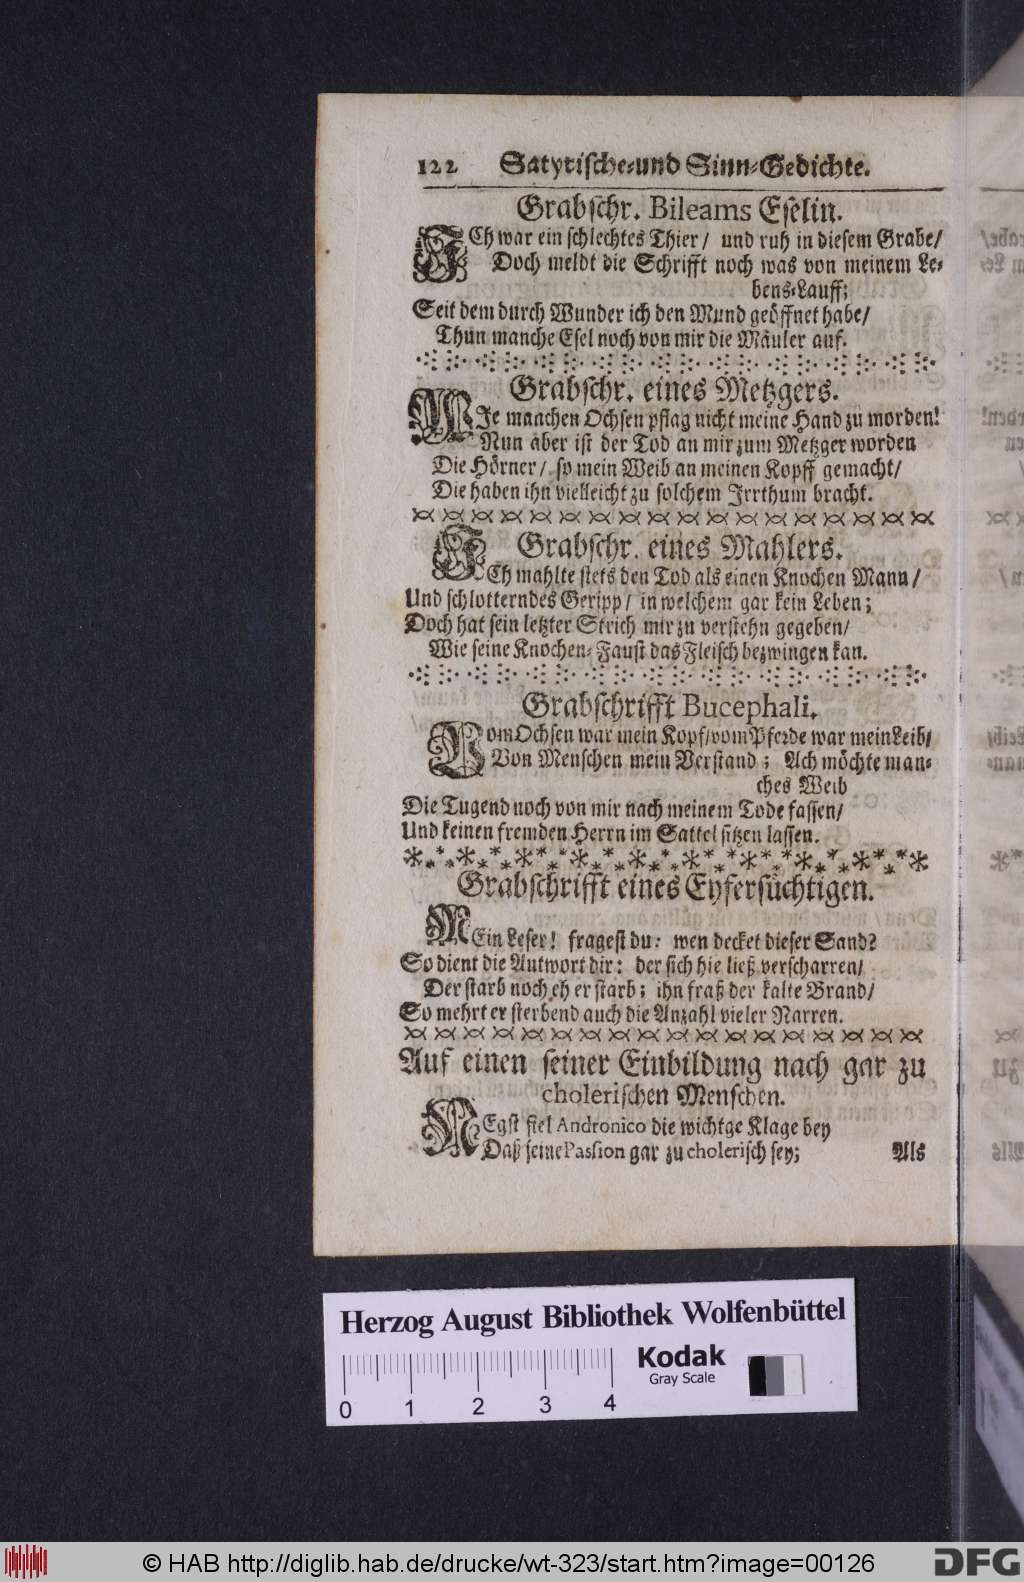 122 Satyrische-und Sinn-Gedichte.
Grabschr. Bileams Eselin.
ICh war ein schlechtes Thier/ und ruh in diesem Grabe/
Doch meldt die Schrifft noch was von meinem Le-
bens-Lauff;
Seit dem durch Wunder ich den Mund geöffnet habe/
Thun manche Esel noch von mir die Mäuler auf.
Grabschr. eines Metzgers.
WIe manchen Ochsen pflag nicht meine Hand zu morden!
Nun aber ist der Tod an mir zum Metzger worden
Die Hörner/ so mein Weib an meinen Kopff gemacht/
Die haben ihn vielleicht zu solchem Irrthum bracht.
Grabschr. eines Mahlers.
ICh mahlte stets den Tod als einen Knochen Mann/
Und schlotterndes Geripp/ in welchem gar kein Leben;
Doch hat sein letzter Strich mir zu verstehn gegeben/
Wie seine Knochen-Faust das Fleisch bezwingen kan.
Grabschrifft Bucephali.
Vom Ochsen war mein Kopf/ vom Pferde war mein Leib/
Von Menschen mein Verstand; Ach möchte man-
ches Weib
Die Tugend noch von mir nach meinem Tode fassen/
Und keinen fremden Herrn im Sattel sitzen lassen.
Grabschrifft eines Eyfersüchtigen.
MEin Leser! fragest du: wen decket dieser Sand?
So dient die Antwort dir: der sich hie ließ verscharren/
Der starb noch eh er starb; ihn fraß der kalte Brand/
So mehrt er sterbend auch die Anzahl vieler Narren.
Auf einen seiner Einbildung nach gar zu
cholerischen Menschen.
NEgst fiel Andronico die wichtge Klage bey
Daß seine Passion gar zu cholerisch sey;
Als
Herzog August Bibliothek Wolfenbüttel
Kodak
Gray Scale
0 1 2 3 4
© HAB http://diglib.hab.de/drucke/wt-323/start.htm?image=00126
DFG